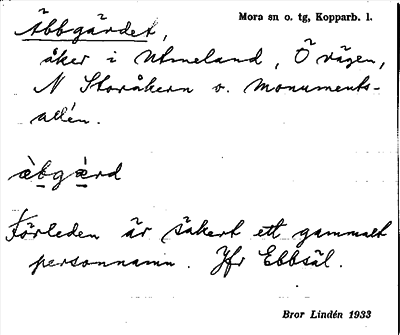 Mora sn o. tg, Kopparb. l.
Äbbgärdet,
åker i Utmeland, Ö vägen,
N Storåkern o. Monuments-
allén.
æ̀bgæ̀rd
Förleden är säkert ett gammalt
personnamn. Jfr Ebbsäl.
Bror Lindén 1933